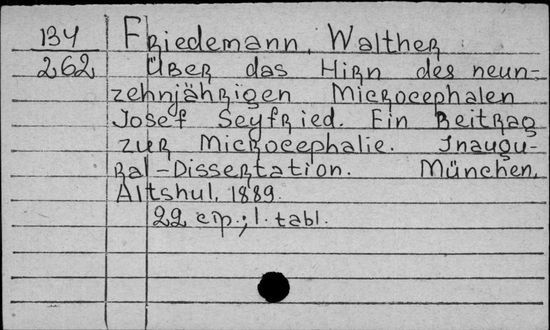 134 Friedemann, Walther
262 Über das Hirn des neun-
zehnjährigen Microcephalen
Josef Seyfried. Ein Beitrag
zur Microcephalie. Inaugu-
ral-Dissertation. München,
Altshul, 1889.
22 cтр.; 1. tabl.